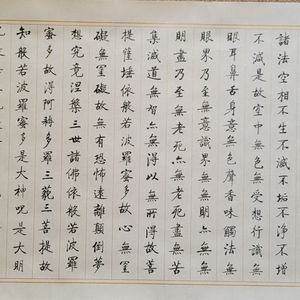 諸法空相不生不滅不垢不淨不增
不減是故空中無色無受想行識無
眼耳鼻舌身意無色聲香味觸法無
眼界乃至無意識界無無明亦無無
明盡乃至無老死亦無老死盡無苦
集滅道無智亦無得以無所得故菩
提薩埵依般若波羅蜜多故心無罣
礙無罣礙故無有恐怖遠離顛倒夢
想究竟涅槃三世諸佛依般若波羅
蜜多故得阿耨多羅三藐三菩提故
知般若波羅蜜多是大神呪是大明